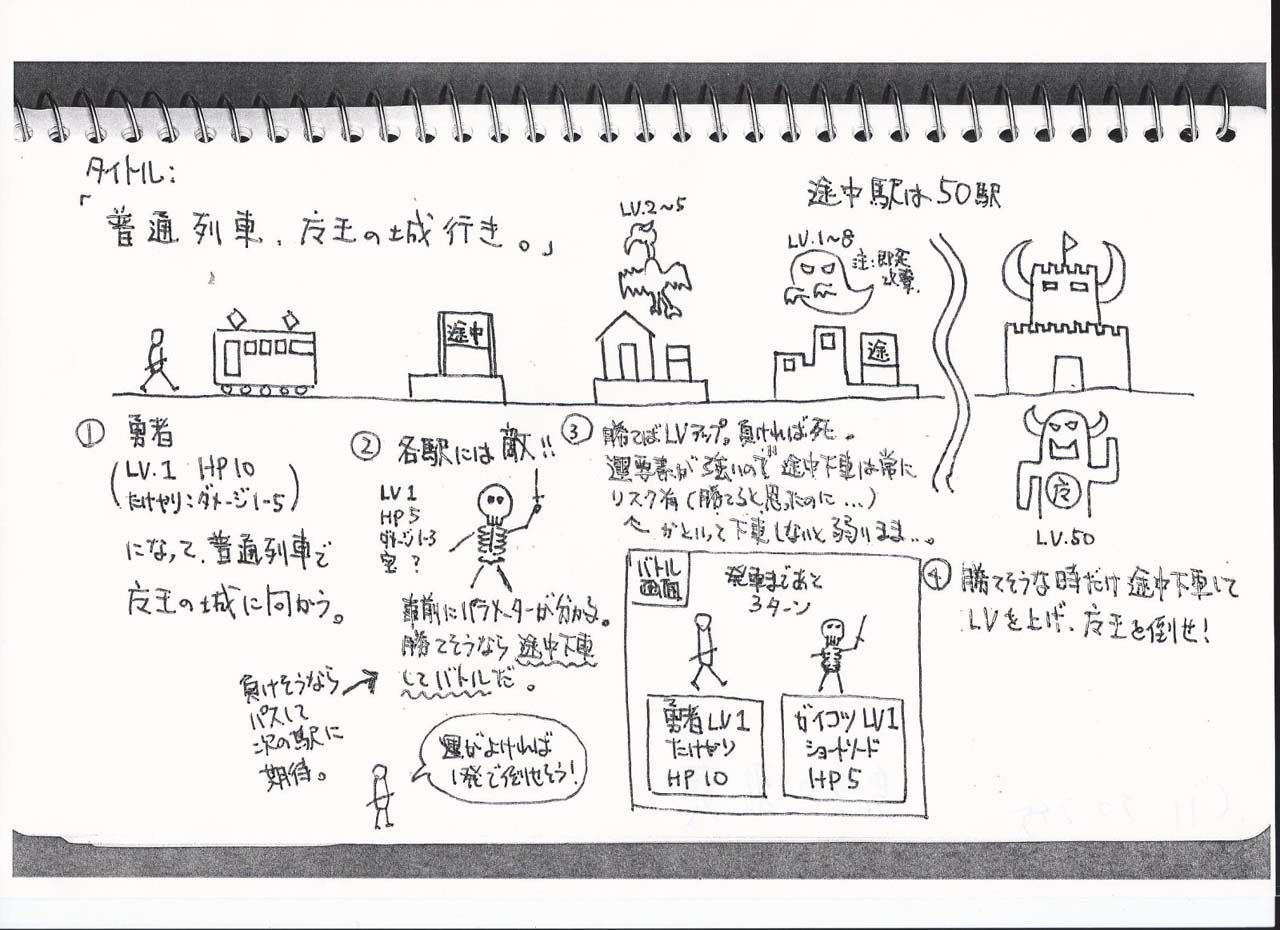 タイトル:
「普通列車、广王の城行き。」
途中駅は50駅
LV.2~5
LV.1~8
注:即死
攻撃.
途中
途
① 勇者
(LV.1 HP10
たけやり:ダメージ1-5)
になって、普通列車で
广王の城に向かう。
② 各駅には敵!!
LV1
HP5
ダメージ1-3
宝?
事前にパラメーターが分かる。
勝てそうなら途中下車
してバトルだ。
負けそうなら
パスして
次の駅に
期待。
運がよければ
1発で倒せそう!
③ 勝てばLVアップ。負ければ死。
運要素が強いので途中下車は常に
リスク有(勝てると思ったのに...)
かといって下車しないと弱いまま...。
バトル
画面
発車まであと
3ターン
勇者LV1
たけやり
HP10
ガイコツLV1
ショートソード
HP5
广
LV.50
④ 勝てそうな時だけ途中下車して
LVを上げ、广王を倒せ!